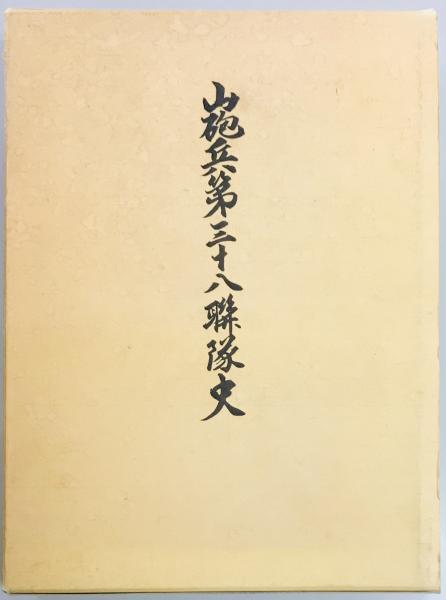 山砲兵第三十八聯隊史